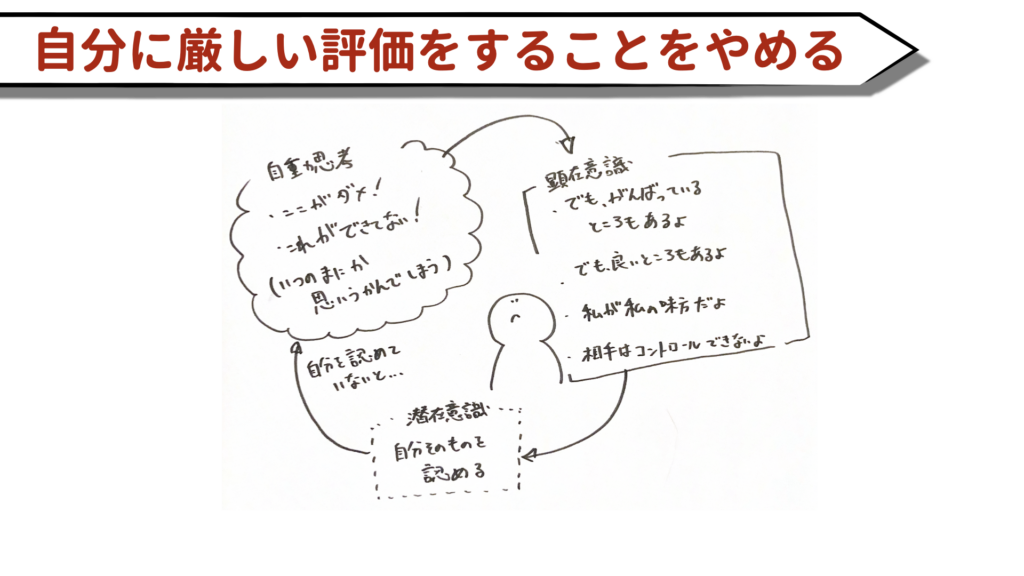 自分に厳しい評価をすることをやめる
自動思考
・ここがダメ!
・これができてない!
(いつのまにか
思いうかんでしまう)
顕在意識
・でも、がんばっている
ところもあるよ
・でも、良いところもあるよ
・私が私の味方だよ
・相手はコントロールできないよ
自分を認めて
いないと...
潜在意識
自分そのものを
認める